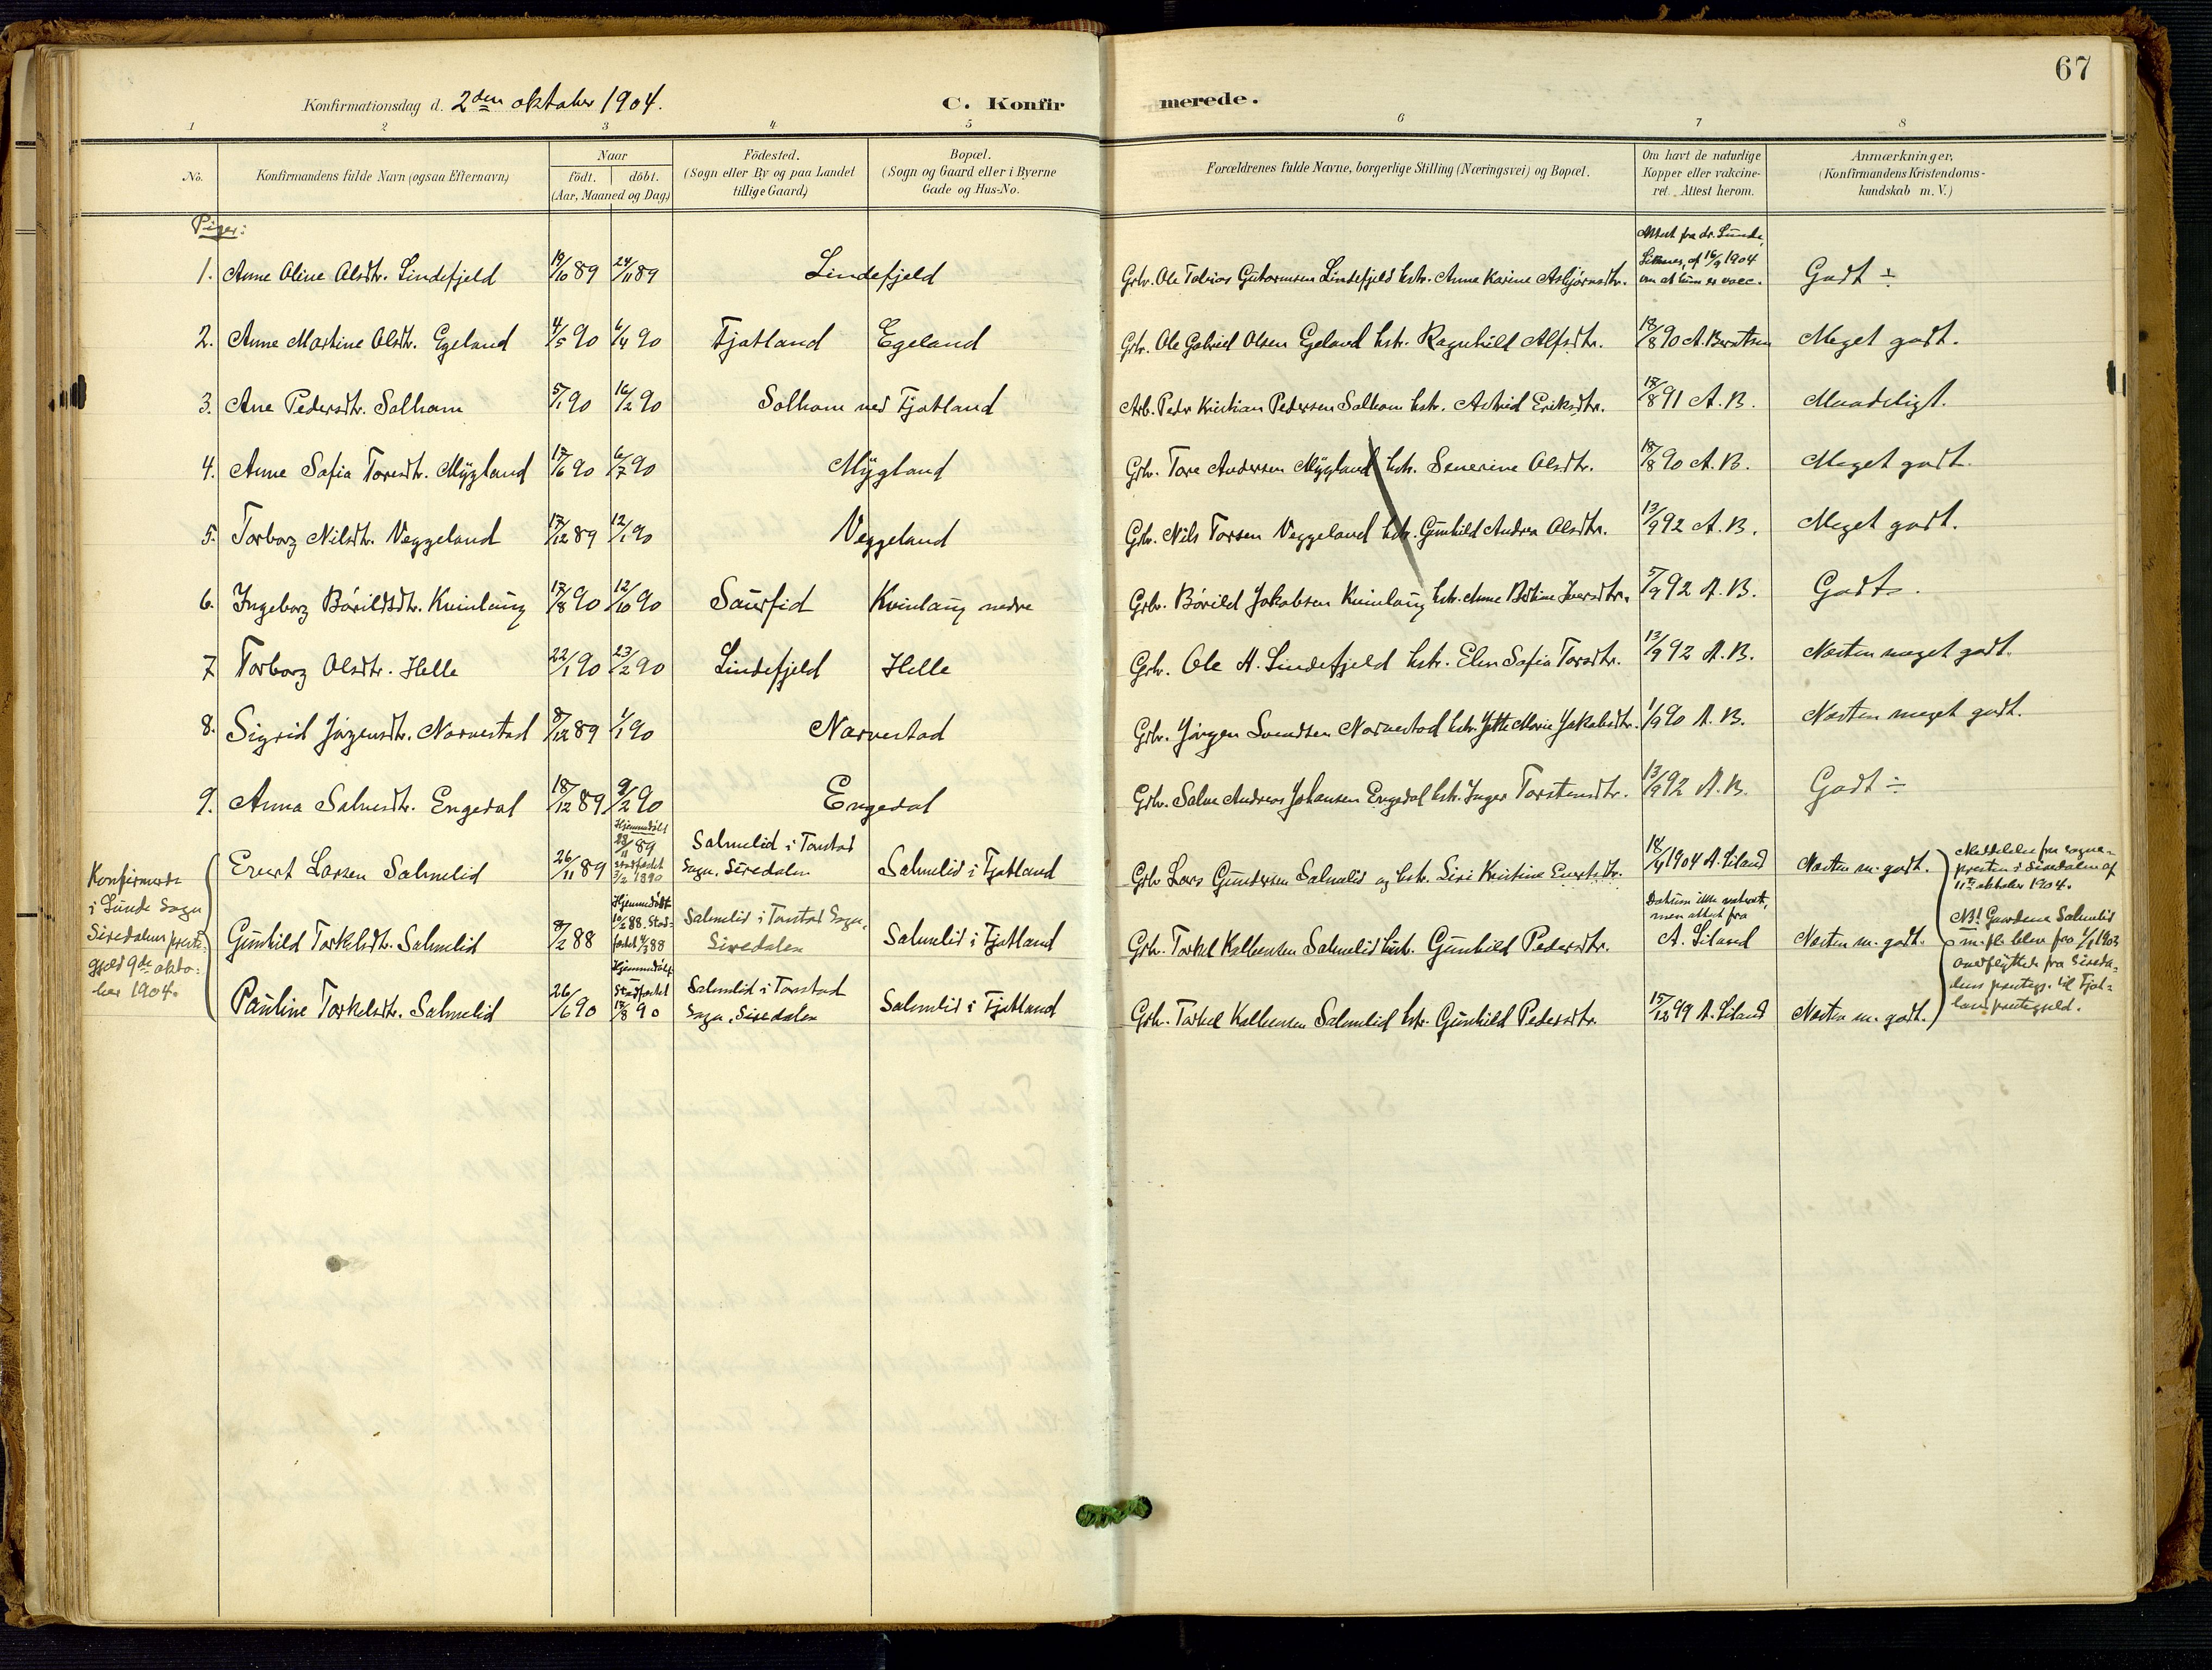 67
Konfirmationsdag d. 2den oktober 1904.
C. Konfirmerede.
1 2 3 4 5 6 7 8
No.
Konfirmandens fulde Navn (ogsaa Efternavn)
Naar
födt. döbt.
(Aar, Maaned og Dag)
Födested.
(Sogn eller By og paa Landet
tillige Gaard)
Bopæl.
(Sogn og Gaard eller i Byerne
Gade og Hus-No.
Forældrenes fulde Navne, borgerlige Stilling (Næringsvei) og Bopæl.
Om havt de naturlige
Kopper eller vakcine-
ret. Attest herom.
Anmærkninger,
(Konfirmandens Kristendoms-
kundskab m. V.)
Piger:
Attest fra dr. Lunde,
af 16/9 1904
om at hun er vacc.
1. Anne Oline Olsdtr. Lindefjeld 19/10 89 24/11 89 Lindefjeld Grbr. Ole Tobias Gutormsen Lindefjeld hstr. Anne Karine Asbjörnsdtr. Godt ÷
2. Anne Martine Olsdtr. Egeland 4/5 90 6/4 90 Fjotland Egeland Grbr. Ole Gabriel Olsen Egeland hstr. Ragnhild Alfsdtr. 18/8 90 A. Berntsen Meget godt.
3. Ane Pedersdtr. Solhom 5/1 90 16/2 90 Solhom ved Fjotland Arb. Peder Kristian Pedersen Solhom hstr. Astrid Eriksdtr. 17/8 91 A. B. Maadeligt.
4. Anne Sofia Toresdtr. Mygland 17/6 90 6/7 90 Mygland Grbr. Tore Andersen Mygland hstr. Severine Olsdtr. 18/8 90 A. B. Meget godt.
5. Torborg Nilsdtr. Veggeland 17/12 89 12/1 90 Veggeland Grbr. Nils Torsen Veggeland hstr. Gunhild Andrea Olsdtr. 13/9 92 A. B. Meget godt.
6. Ingeborg Börildsdtr. Kvinlaug 17/8 90 12/10 90 Saurfid Kvinlaug nedre Grbr. Börild Jakobsen Kvinlaug hstr. Anne Bertine Iversdtr. 5/9 92 A. B. Godt.
7 Torborg Olsdtr. Helle 22/1 90 23/2 90 Lindefjeld Helle Grbr. Ole A. Lindefjeld hstr. Elen Sofia Torsdtr. 13/9 92 A. B. Næsten meget godt.
8. Sigrid Jörgensdtr. Narvestad 8/12 89 1/1 90 Narvestad Grbr. Jörgen Svendsen Narvestad hstr. Jitte Marie Jakobsdtr. 1/9 90 A. B. Næsten meget godt.
9. Anna Salvesdtr. Engedal 18/12 89 9/2 90 Engedal Grbr. Salve Andreas Johansen Engedal hstr. Inger Torstensdtr. 13/9 92 A. B. Godt ÷
Konfirmerte
i Lunde Sogn
Siredalens preste-
gjeld 9de okto-
ber 1904.
Evert Larsen Salmelid 26/11 89 Hjemmedöbt
28/11 89
stadfæstet
3/2 1890
Salmelid i Tonstad
Sogn, Siredalen
Salmelid i Fjotland Grbr Lars Gundersen Salmelid og hstr. Siri Kristine Evertsdtr. 18/4 1904 A. Liland Næsten m. godt.
Gunhild Torkelsdtr. Salmelid 8/2 88 Hjemmedöbt
10/2 88. Stad-
fæstet 4/3 88
Salmelid i Tonstad Sogn,
Siredalen
Salmelid i Fjotland Grbr. Torkel Kolbensen Salmelid hstr. Gunhild Pedersdtr. Datum ikke
men attest fra
A. Liland Næsten m. godt.
Pauline Torkelsdtr. Salmelid 26/6 90 Hjemmedöbt
Stadfæstet
17/8 90
Salmelid i Tonstad
Sogn, Siredalen
Salmelid i Fjotland Grbr. Torkel Kolbensen Salmelid hstr. Gunhild Pedersdtr. 15/12 99 A. Liland Næsten m. godt.
Meddelelse fra sogne-
presten i Siredalen af
11te oktober 1904.
NB! Gaardene Salmelid
m. fl. blev fra 1/1 1903
overflyttet fra Sireda-
lens prestegj. til Fjot-
land prestegjeld.